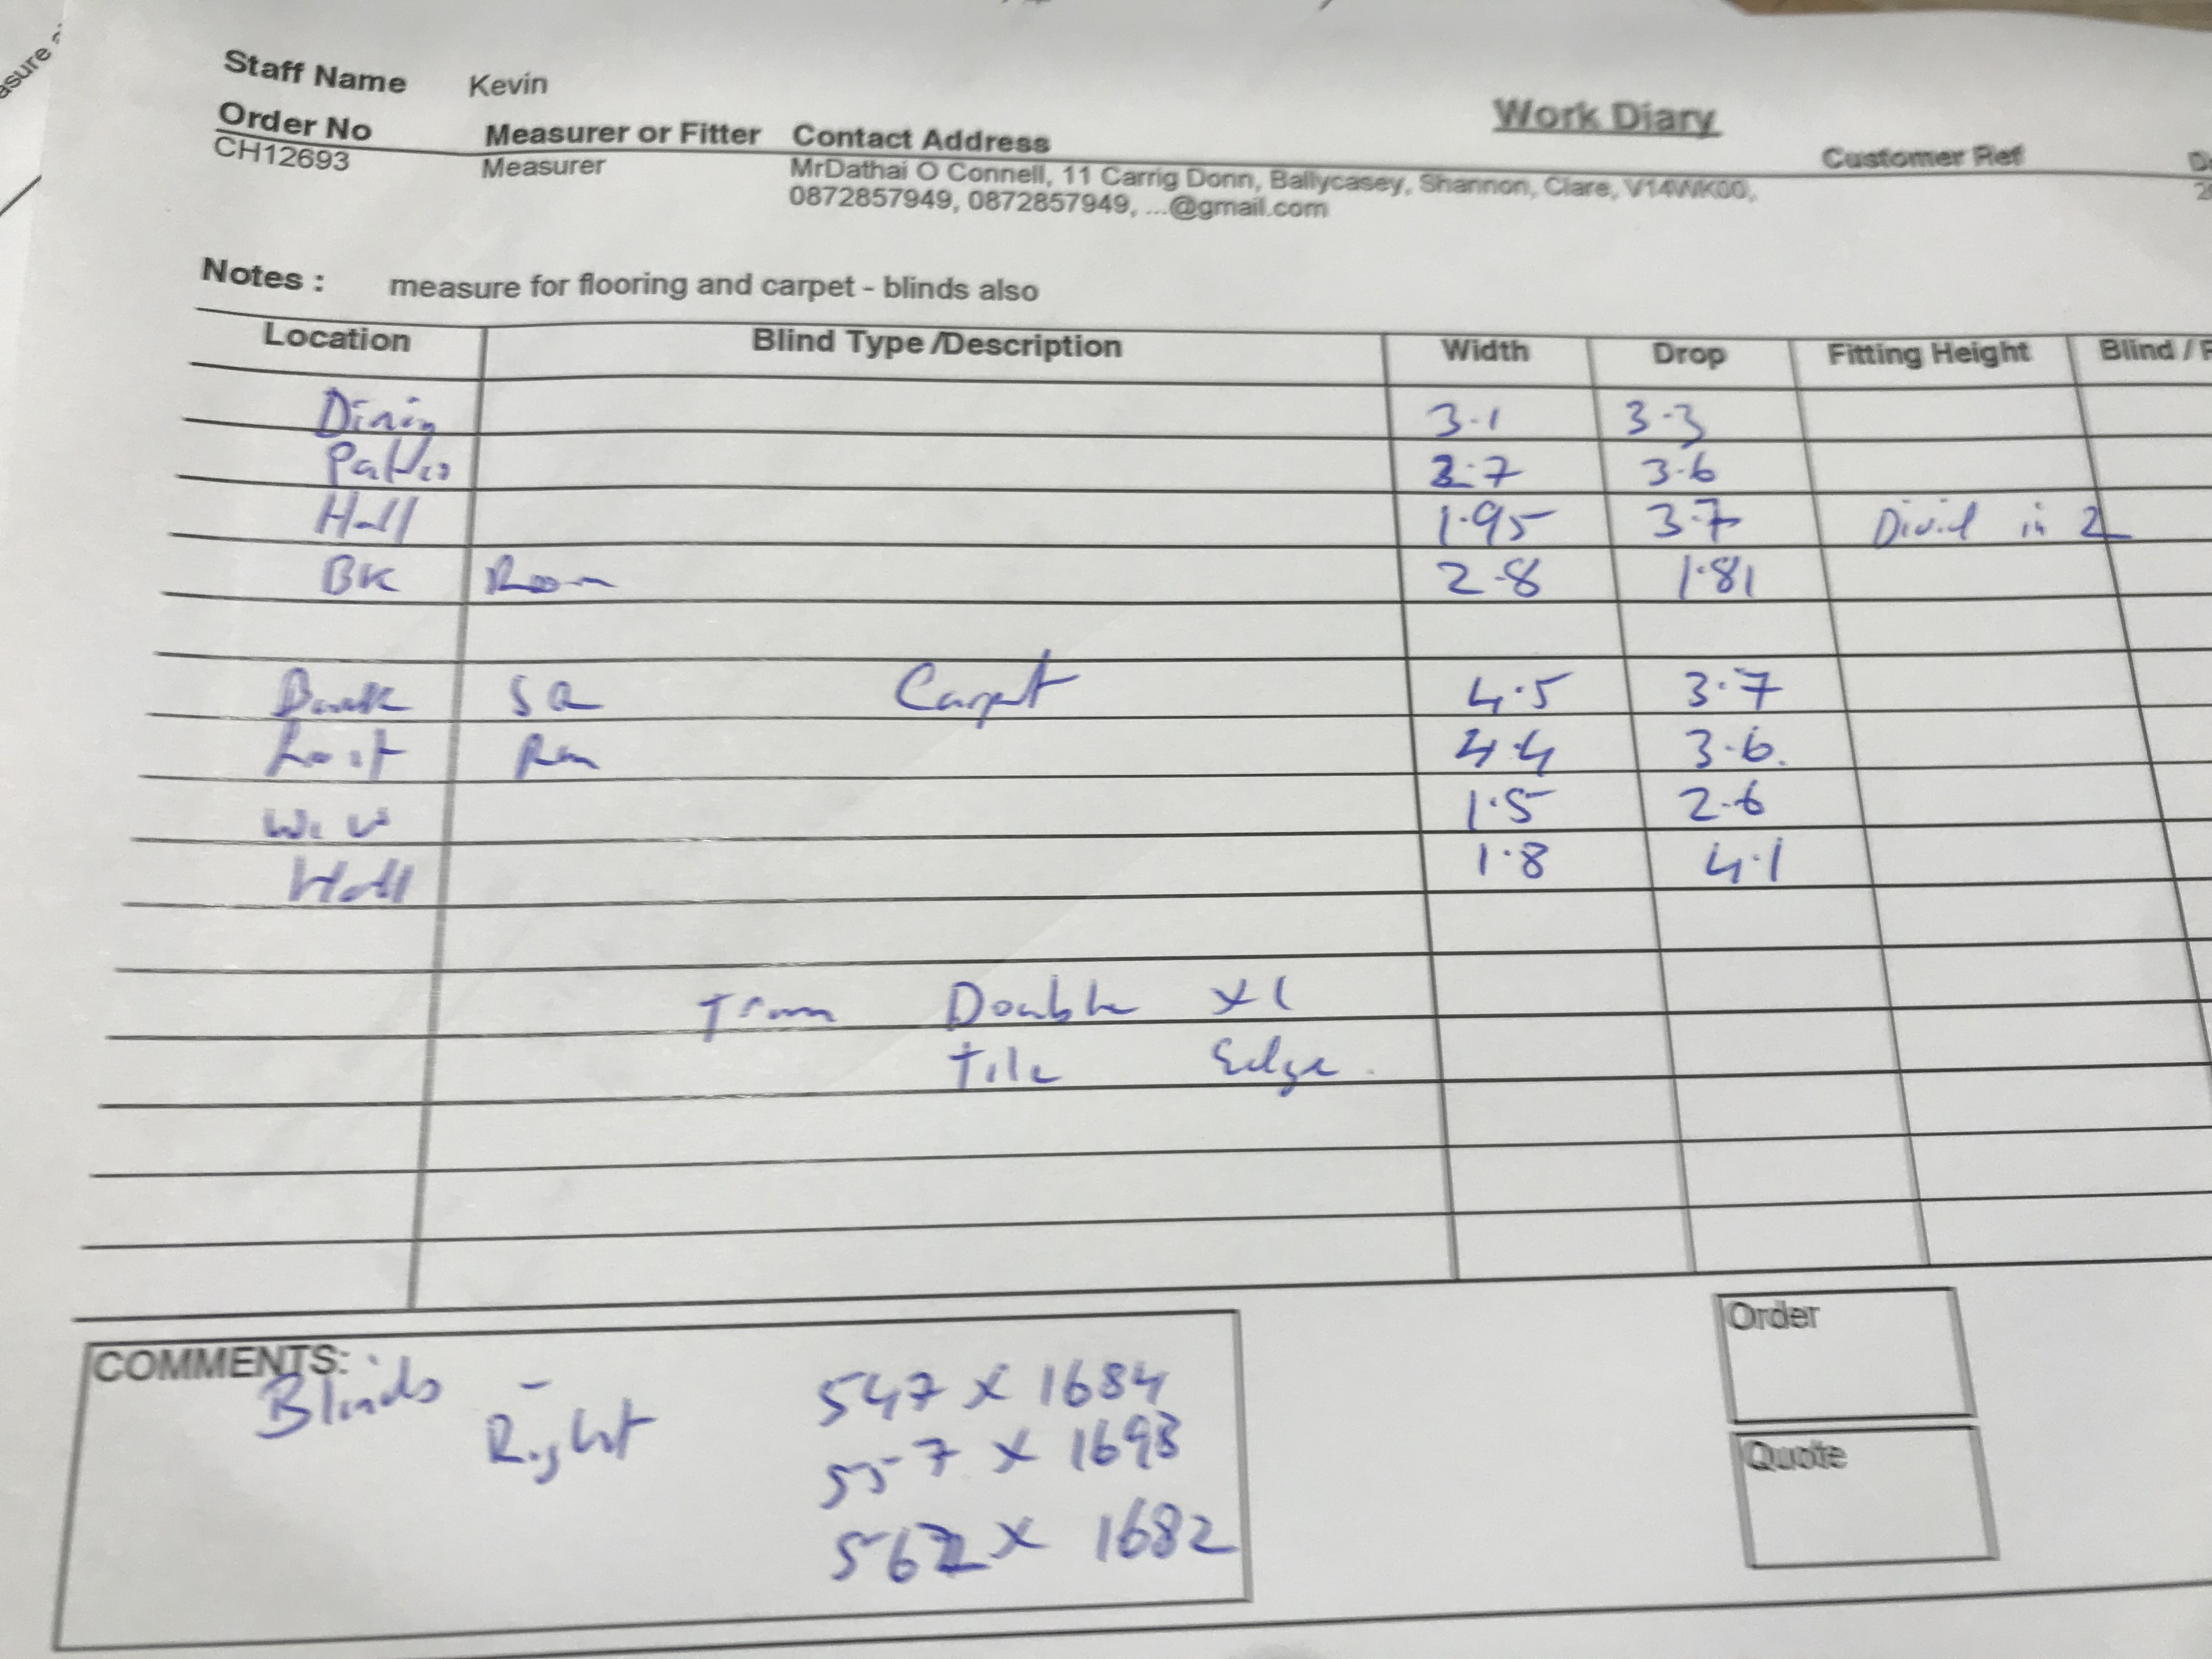 asure
Staff Name Kevin
Work Diary
Order No Measurer or Fitter Contact Address Customer Ref
CH12693 Measurer MrDathai O Connell, 11 Carrig Donn, Ballycasey, Shannon, Clare, V14WK00,
0872857949, 0872857949, ...@gmail.com
Notes : measure for flooring and carpet - blinds also
Location Blind Type /Description Width Drop Fitting Height Blind /
Dining 3.1 3.3
Patio 2.7 3.6
Hall 1.95 3.7 Divid in 2
BK Room 2.8 1.81
SR Carpet 4.5 3.7
Rm 4.4 3.6.
1.5 2.6
Hall 1.8 4.1
Trim Double XL
Tile Edge.
COMMENTS:
Blinds -
Right 547 x 1684
557 x 1693
562 x 1682
Order
Quote